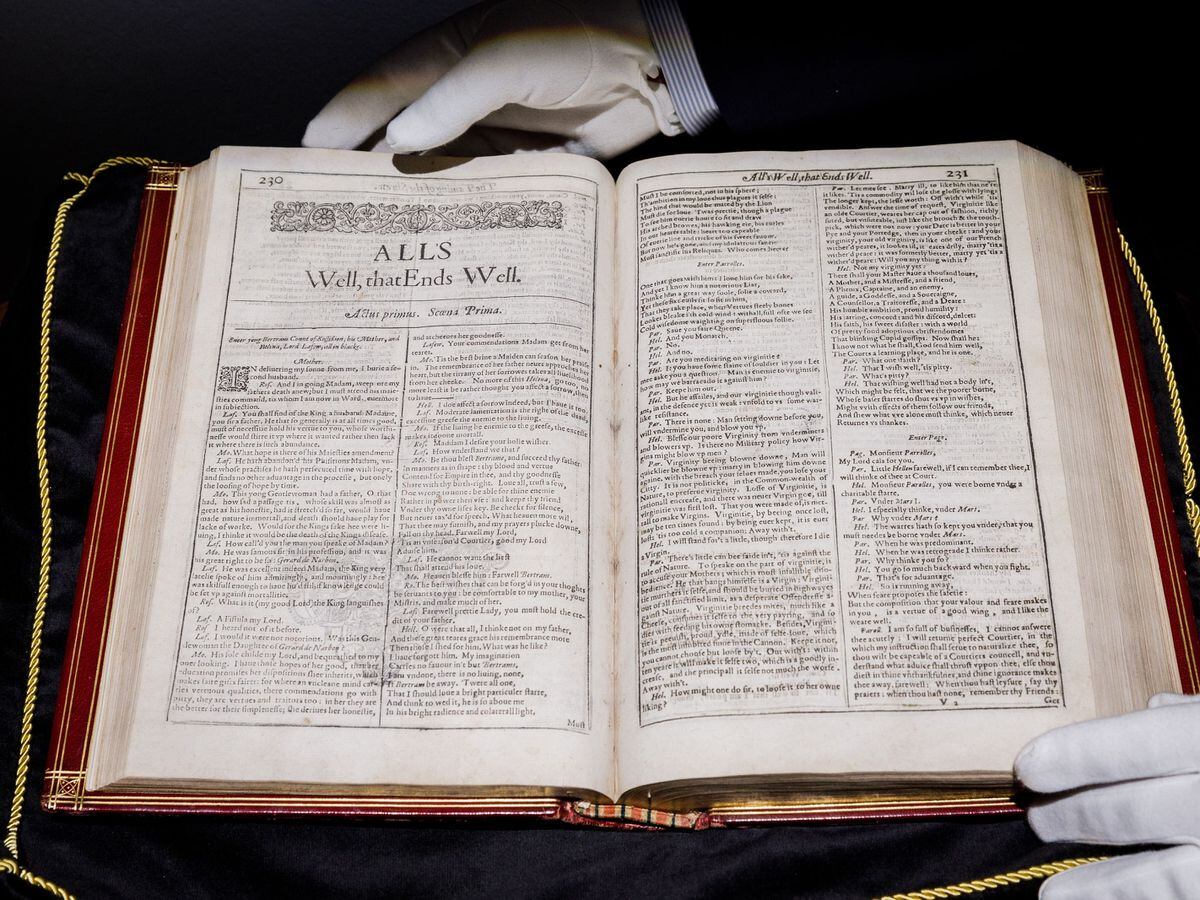 230
ALL'S
Well, that Ends Well.
Actus primus. Scœna Prima.
Enter yong Bertram Count of Rossillion, his Mother, and
Helena, Lord Lafew, all in blacke.
Mother.
IN deliuering my sonne from me, I burie a se-
cond husband.
Ros. And I in going Madam, weep ore my
fathers death anew; but I must attend his maie-
sties command, to whom I am now in Ward, euermore
in subiection.
Laf. You shall find of the King a husband Madame,
you sir a father. He that so generally is at all times good,
must of necessitie hold his vertue to you, whose worthi-
nesse would stirre it vp where it wanted rather then lack
it where there is such abundance.
Mo. What hope is there of his Maiesties amendment?
Laf. He hath abandon'd his Phisitions Madam, vn-
der whose practises he hath persecuted time with hope,
and finds no other aduantage in the processe, but onely
the loosing of hope by time.
Mo. This yong Gentlewoman had a father, O that
had, how sad a passage tis, whose skill was almost as
great as his honestie, had it stretch'd so far, would haue
made nature immortall, and death should haue play for
lacke of worke. Would for the Kings sake hee were li-
uing, I thinke it would be the death of the Kings disease.
Laf. How call'd you the man you speake of Madam?
Mo. He was famous sir in his profession, and it was
his great right to be so: Gerard de Narbon.
Laf. He was excellent indeed Madam, the King very
latelie spoke of him admiringly, and mourningly: hee
was skilfull enough to haue liu'd stil, if knowledge could
be set vp against mortallitie.
Ros. What is it (my good Lord) the King languishes
of?
Laf. A Fistula my Lord.
Ros. I heard not of it before.
Laf. I would it were not notorious. Was this Gen-
tlewoman the Daughter of Gerard de Narbon?
Mo. His sole childe my Lord, and bequeathed to my
ouer looking. I haue those hopes of her good, that her
education promises her dispositions shee inherits, which
makes faire gifts fairer: for where an vncleane mind car-
ries vertuous qualities, there commendations go with
pitty, they are vertues and traitors too: in her they are
the better for their simplenesse; she deriues her honestie,
and atcheeues her goodnesse.
Lafew. Your commendations Madam get from her
teares.
Mo. 'Tis the best brine a Maiden can season her praise
in. The remembrance of her father neuer approches her
heart, but the tirrany of her sorrowes takes all liuelihood
from her cheeke. No more of this Helena, go too, no
more least it be rather thought you affect a sorrow, then
to haue——
Hell. I doe affect a sorrow indeed, but I haue it too.
Laf. Moderate lamentation is the right of the dead,
excessiue greefe the enemie to the liuing.
Mo. If the liuing be enemie to the greefe, the excesse
makes it soone mortall.
Ros. Maddam I desire your holie wishes.
Laf. How vnderstand we that?
Mo. Be thou blest Bertrame, and succeed thy father
In manners as in shape: thy blood and vertue
Contend for Empire in thee, and thy goodnesse
Share with thy birth-right. Loue all, trust a few,
Doe wrong to none: be able for thine enemie
Rather in power then vse: and keepe thy friend
Vnder thy owne lifes key. Be checkt for silence,
But neuer tax'd for speech. What heauen more wil,
That thee may furnish, and my prayers plucke downe,
Fall on thy head. Farwell my Lord,
'Tis an vnseason'd Courtier, good my Lord
Aduise him.
Laf. He cannot want the best
That shall attend his loue.
Mo. Heauen blesse him: Farwell Bertram.
Ro. The best wishes that can be forg'd in your thoughts
be seruants to you: be comfortable to my mother, your
Mistris, and make much of her.
Laf. Farewell prettie Lady, you must hold the cre-
dit of your father.
Hell. O were that all, I thinke not on my father,
And these great teares grace his remembrance more
Then those I shed for him. What was he like?
I haue forgott him. My imagination
Carries no fauour in't but Bertrams.
I am vndone, there is no liuing, none,
If Bertram be away. 'Twere all one,
That I should loue a bright particuler starre,
And think to wed it, he is so aboue me
In his bright radience and colaterall light,
Must
All's Well, that Ends Well.
231
Must I be comforted, not in his sphere;
Th'ambition in my loue thus plagues it selfe:
The hind that would be mated by the Lion
Must die for loue. 'Twas prettie, though a plague
To see him euerie houre to sit and draw
His arched browes, his hawking eie, his curles
In our hearts table: heart too capeable
Of euerie line and tricke of his sweet fauour.
But now he's gone, and my idolatrous fancie
Must sanctifie his Reliques. Who comes heere?
Enter Parrolles.
One that goes with him: I loue him for his sake,
And yet I know him a notorious Liar,
Thinke him a great way foole, solie a coward,
Yet these fixt euils sit so fit in him,
That they take place, when Vertues steely bones
Lookes bleake i'th cold wind: withall, full ofte we see
Cold wisedome waighting on superfluous follie.
Par. Saue you faire Queene.
Hel. And you Monarch.
Par. No.
Hel. And no.
Par. Are you meditating on virginitie?
Hel. I: you haue some staine of souldier in you: Let
mee aske you a question. Man is enemie to virginitie,
how may we barracado it against him?
Par. Keepe him out.
Hel. But he assailes, and our virginitie though vali-
ant, in the defence yet is weak: vnfold to vs some war-
like resistance.
Par. There is none: Man setting downe before you,
will vndermine you, and blow you vp.
Hel. Blesse our poore Virginity from vnderminers
and blowers vp. Is there no Military policy how Vir-
gins might blow vp men?
Par. Virginity beeing blowne downe, Man will
quicklier be blowne vp: marry in blowing him downe
againe, with the breach your selues made, you lose your
City. It is not politicke, in the Common-wealth of
Nature, to preserue virginity. Losse of Virginitie, is
rationall encrease, and there was neuer Virgin goe, till
virginitie was first lost. That you were made of, is met-
tall to make Virgins. Virginitie, by beeing once lost,
may be ten times found: by being euer kept, it is euer
lost: 'tis too cold a companion: Away with't.
Hel. I will stand for't a little, though therefore I die
a Virgin.
Par. There's little can bee saide in't, 'tis against the
rule of Nature. To speake on the part of virginitie, is
to accuse your Mothers; which is most infallible diso-
bedience. He that hangs himselfe is a Virgin: Virgini-
tie murthers it selfe, and should be buried in highwayes
out of all sanctified limit, as a desperate Offendresse a-
gainst Nature. Virginitie breedes mites, much like a
Cheese, consumes it selfe to the very payring, and so
dies with feeding his owne stomacke. Besides, Virgini-
tie is peeuish, proud, ydle, made of selfe-loue, which
is the most inhibited sinne in the Cannon. Keepe it not,
you cannot choose but loose by't. Out with't: within
ten yeare it will make it selfe two, which is a goodly in-
crease, and the principall it selfe not much the worse.
Away with't.
Hel. How might one do sir, to loose it to her owne
liking?
Par. Let mee see. Marry ill, to like him that ne're
it likes. 'Tis a commodity wil lose the glosse with lying:
The longer kept, the lesse worth: Off with't while 'tis
vendible. Answer the time of request, Virginitie like
an olde Courtier, weares her cap out of fashion, richly
suted, but vnsuteable, iust like the brooch & the tooth-
pick, which were not now: your Date is better in your
Pye and your Porredge, then in your cheeke: and your
virginity, your old virginity, is like one of our French
wither'd peares, it lookes ill, it eates drily, marry 'tis a
wither'd peare: it was formerly better, marry yet 'tis a
wither'd peare: Will you any thing with it?
Hel. Not my virginity yet:
There shall your Master haue a thousand loues,
A Mother, and a Mistresse, and a friend,
A Phenix, Captaine, and an enemy,
A guide, a Goddesse, and a Soueraigne,
A Counsellor, a Traitoresse, and a Deare:
His humble ambition, proud humility:
His iarring, concord: and his discord, dulcet:
His faith, his sweet disaster: with a world
Of pretty fond adoptious christendomes
That blinking Cupid gossips. Now shall he:
I know not what he shall, God send him well,
The Courts a learning place, and he is one.
Par. What one ifaith?
Hel. That I wish well, 'tis pitty.
Par. What's pitty?
Hel. That wishing well had not a body in't,
Which might be felt, that we the poorer borne,
Whose baser starres do shut vs vp in wishes,
Might with effects of them follow our friends,
And shew what we alone must thinke, which neuer
Returnes vs thankes.
Enter Page.
Pag. Monsieur Parrolles,
My Lord cals for you.
Par. Little Hellen farewell, if I can remember thee, I
will thinke of thee at Court.
Hel. Monsieur Parolles, you were borne vnder a
charitable starre.
Par. Vnder Mars I.
Hel. I especially thinke, vnder Mars.
Par. Why vnder Mars?
Hel. The warres hath so kept you vnder, that you
must needes be borne vnder Mars.
Par. When he was predominant.
Hel. When he was retrograde I thinke rather.
Par. Why thinke you so?
Hel. You go so much backward when you fight.
Par. That's for aduantage.
Hel. So is running away,
When feare proposes the safetie:
But the composition that your valour and feare makes
in you, is a vertue of a good wing, and I like the
weare well.
Paroll. I am so full of businesses, I cannot answere
thee acutely: I will returne perfect Courtier, in the
which my instruction shall serue to naturalize thee, so
thou wilt be capeable of a Courtiers councell, and vn-
derstand what aduice shall thrust vppon thee, else thou
diest in thine vnthankfulnes, and thine ignorance makes
thee away, farewell: When thou hast leysure, say thy
praiers: when thou hast none, remember thy Friends:
V 2
Get